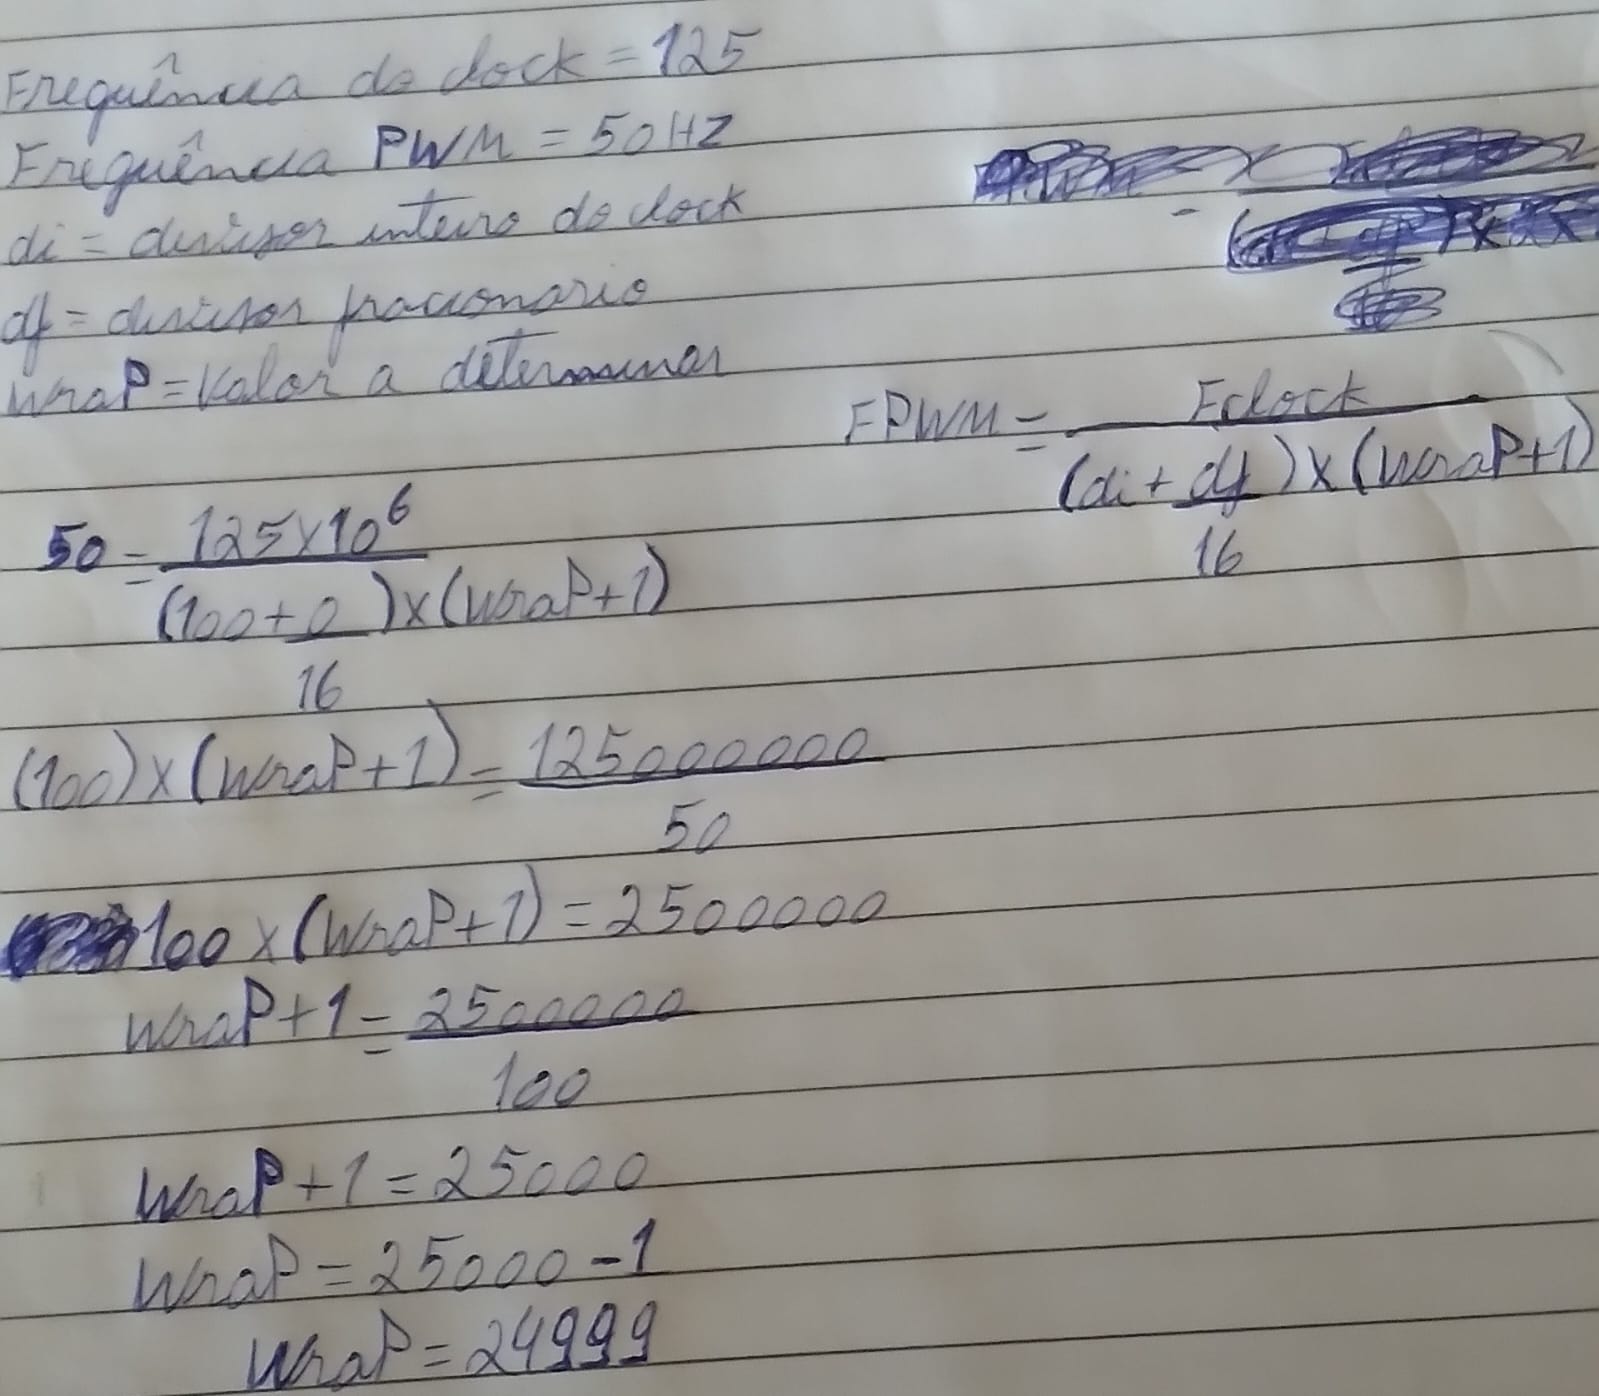 Frequência do clock = 125
Frequência PWM = 50HZ
di = divisor inteiro do clock
df = divisor fracionario
wraP = Valor a determinar
FPWM = Fclock
(di + df) x (wraP+1)
16
50 = 125x10⁶
(100 + 0) x (wraP+1)
16
(100) x (wraP+1) = 125000000
50
100 x (wraP+1) = 2500000
wraP+1 = 2500000
100
wraP+1 = 25000
wraP = 25000 - 1
wraP = 24999